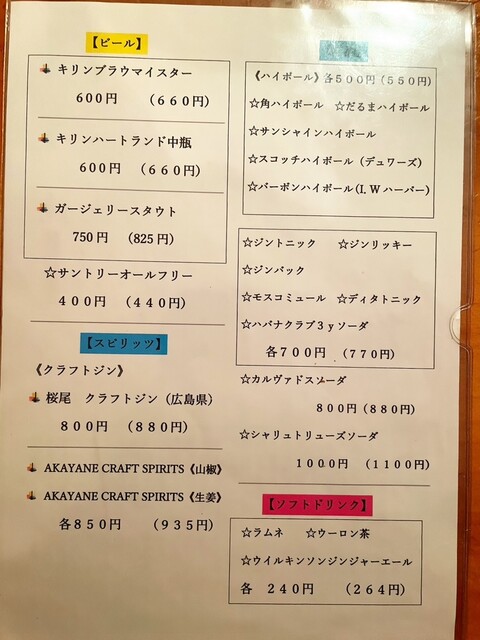 【ビール】
キリンブラウマイスター
600円 （660円）
キリンハートランド中瓶
600円 （660円）
ガージェリースタウト
750円 （825円）
☆サントリーオールフリー
400円 （440円）
【スピリッツ】
《クラフトジン》
桜尾 クラフトジン（広島県）
800円 （880円）
AKAYANE CRAFT SPIRITS《山椒》
AKAYANE CRAFT SPIRITS《生姜》
各850円 （935円）
《ハイボール》各500円（550円）
☆角ハイボール ☆だるまハイボール
☆サンシャインハイボール
☆スコッチハイボール（デュワーズ）
☆バーボンハイボール(I.Wハーバー)
☆ジントニック ☆ジンリッキー
☆ジンバック
☆モスコミュール ☆ディタトニック
☆ハバナクラブ3yソーダ
各700円 （770円）
☆カルヴァドスソーダ
800円（880円）
☆シャリュトリューズソーダ
1000円 （1100円）
【ソフトドリンク】
☆ラムネ ☆ウーロン茶
☆ウイルキンソンジンジャーエール
各 240円 （264円）